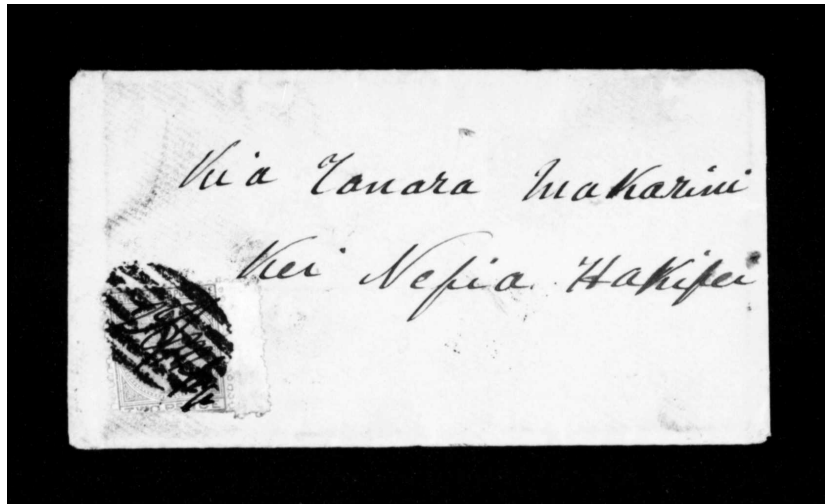 Kia Tanara Makarini
Kei Nepia Hakipei